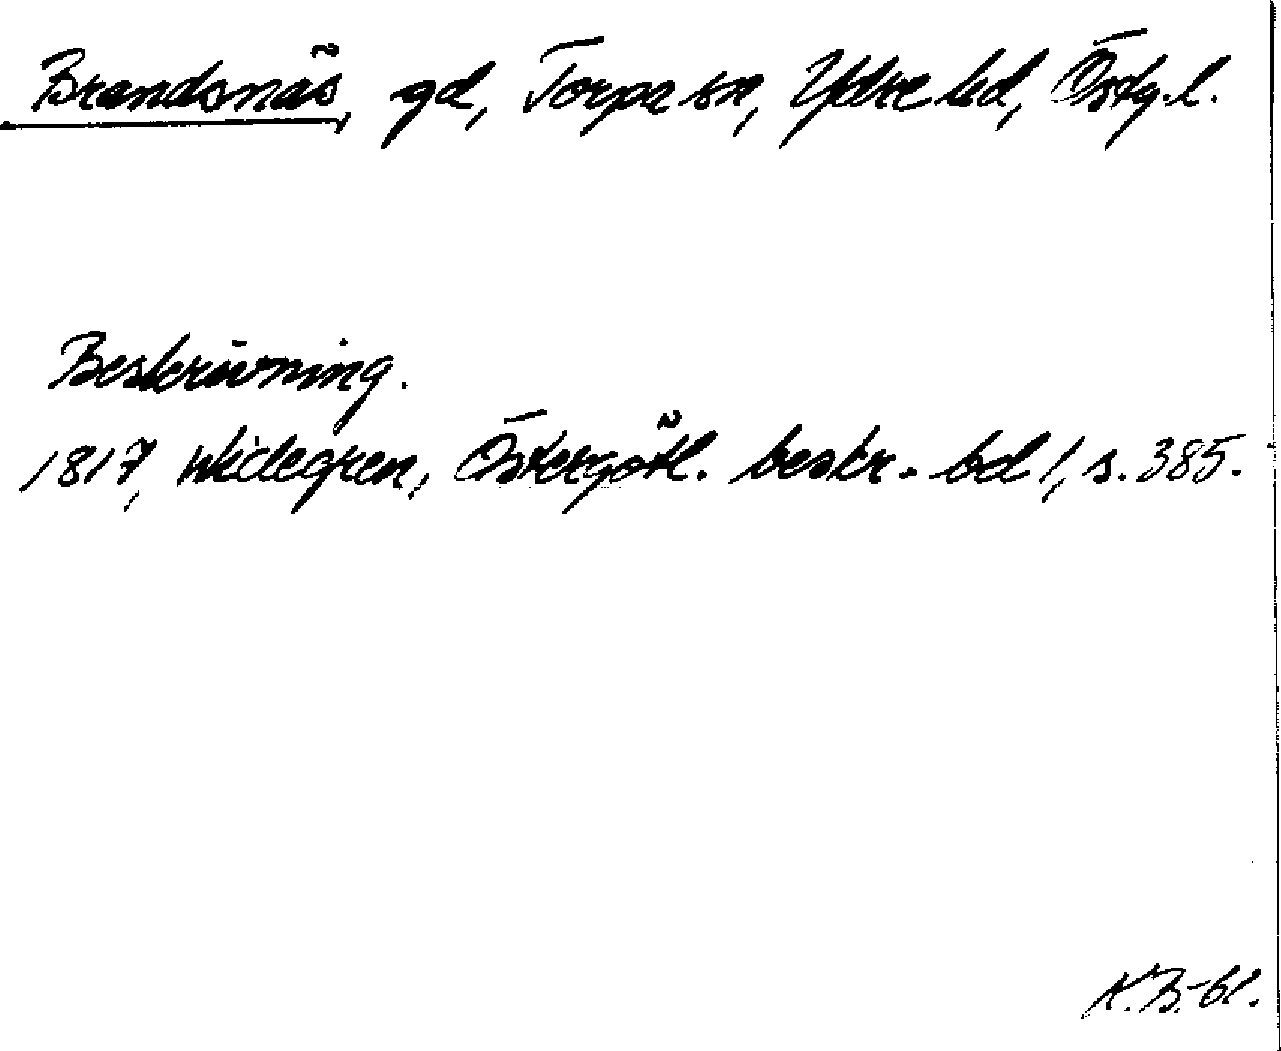 Brandsnäs, gd, Torpa sn, Ydre hd, Östg.l.
Beskrivning.
1817, Widegren, Östergötl. beskr. bd 1, s. 385.
K.B-61.